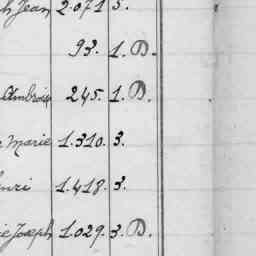 h Jean 2.071 3.
93. 1. D.
Ambroise 245. 1. D.
e Marie 1.310. 3.
enri 1.418. 3.
ie Joseph 1.029. 3. D.